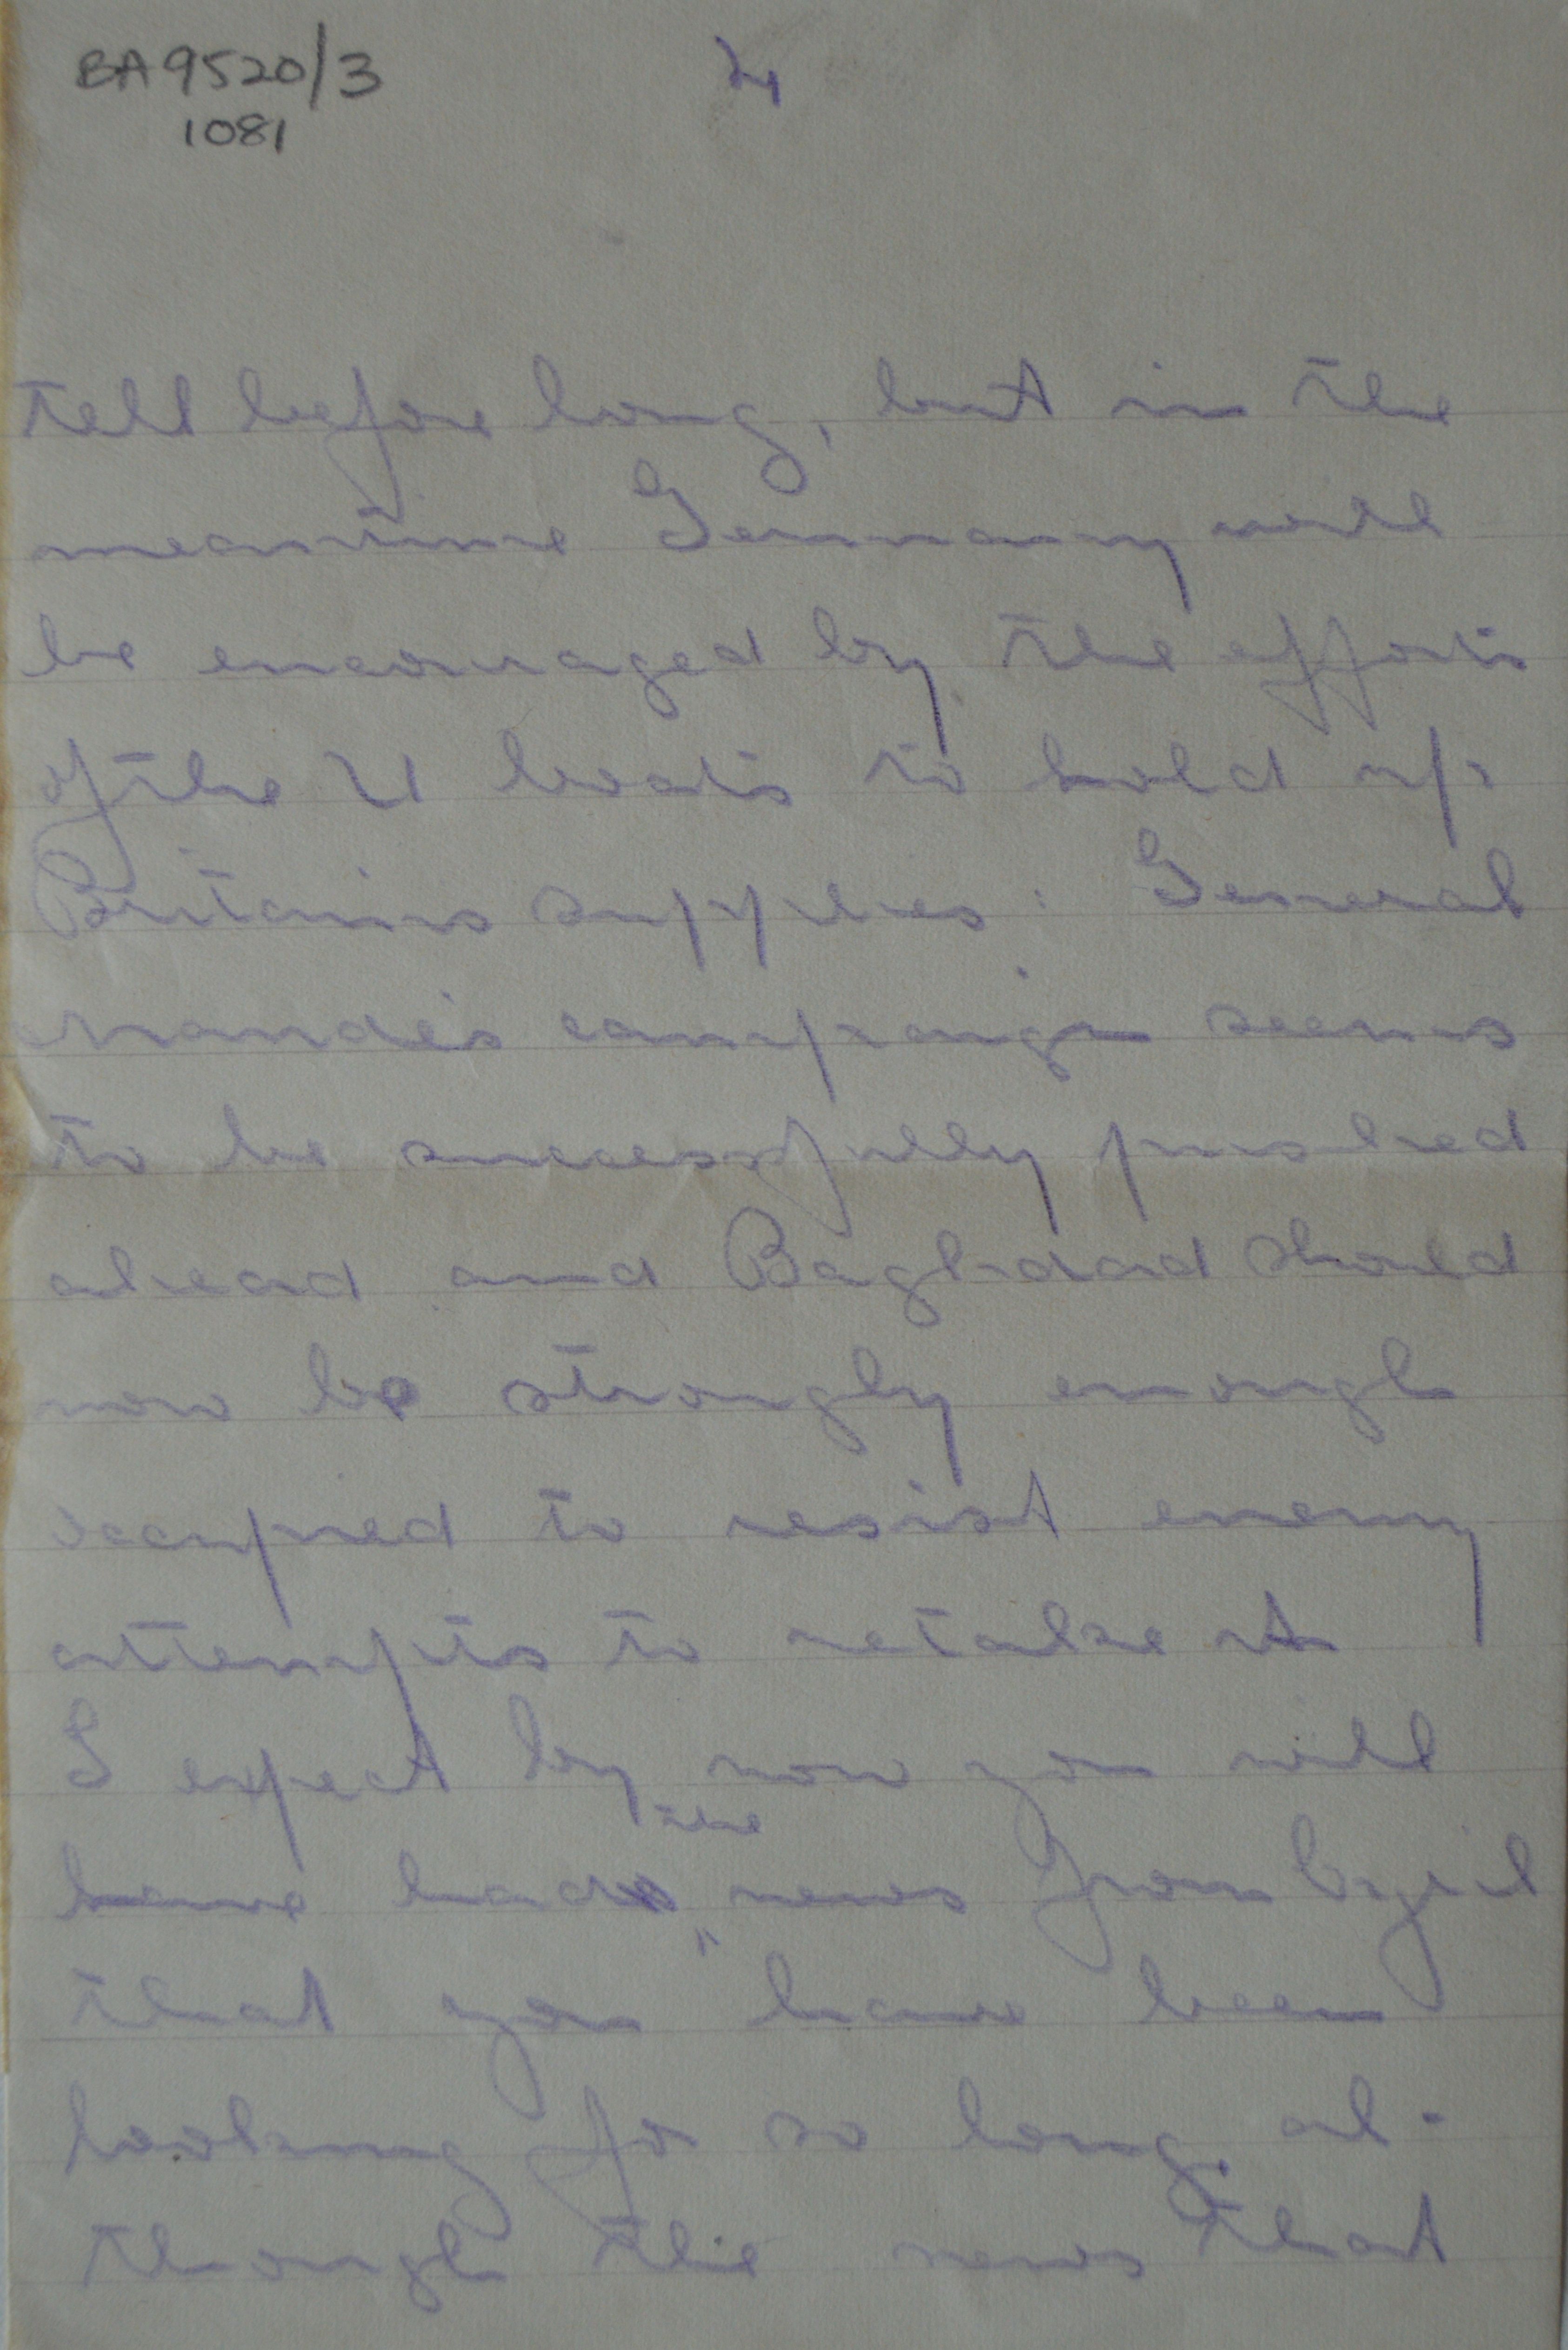 BA9520/3
1081
4
tell before long, but in the
meantime Germany will
be encouraged by the efforts
of the U boats to hold up
Britains supplies. General
Maude's campaign seems
to be successfully pushed
ahead and Baghdad should
now be strongly enough
occupied to resist enemy
attempts to retake it
I expect by now you will
the
have had news from Cyril
that you have been
looking for so long, al-
though the news that